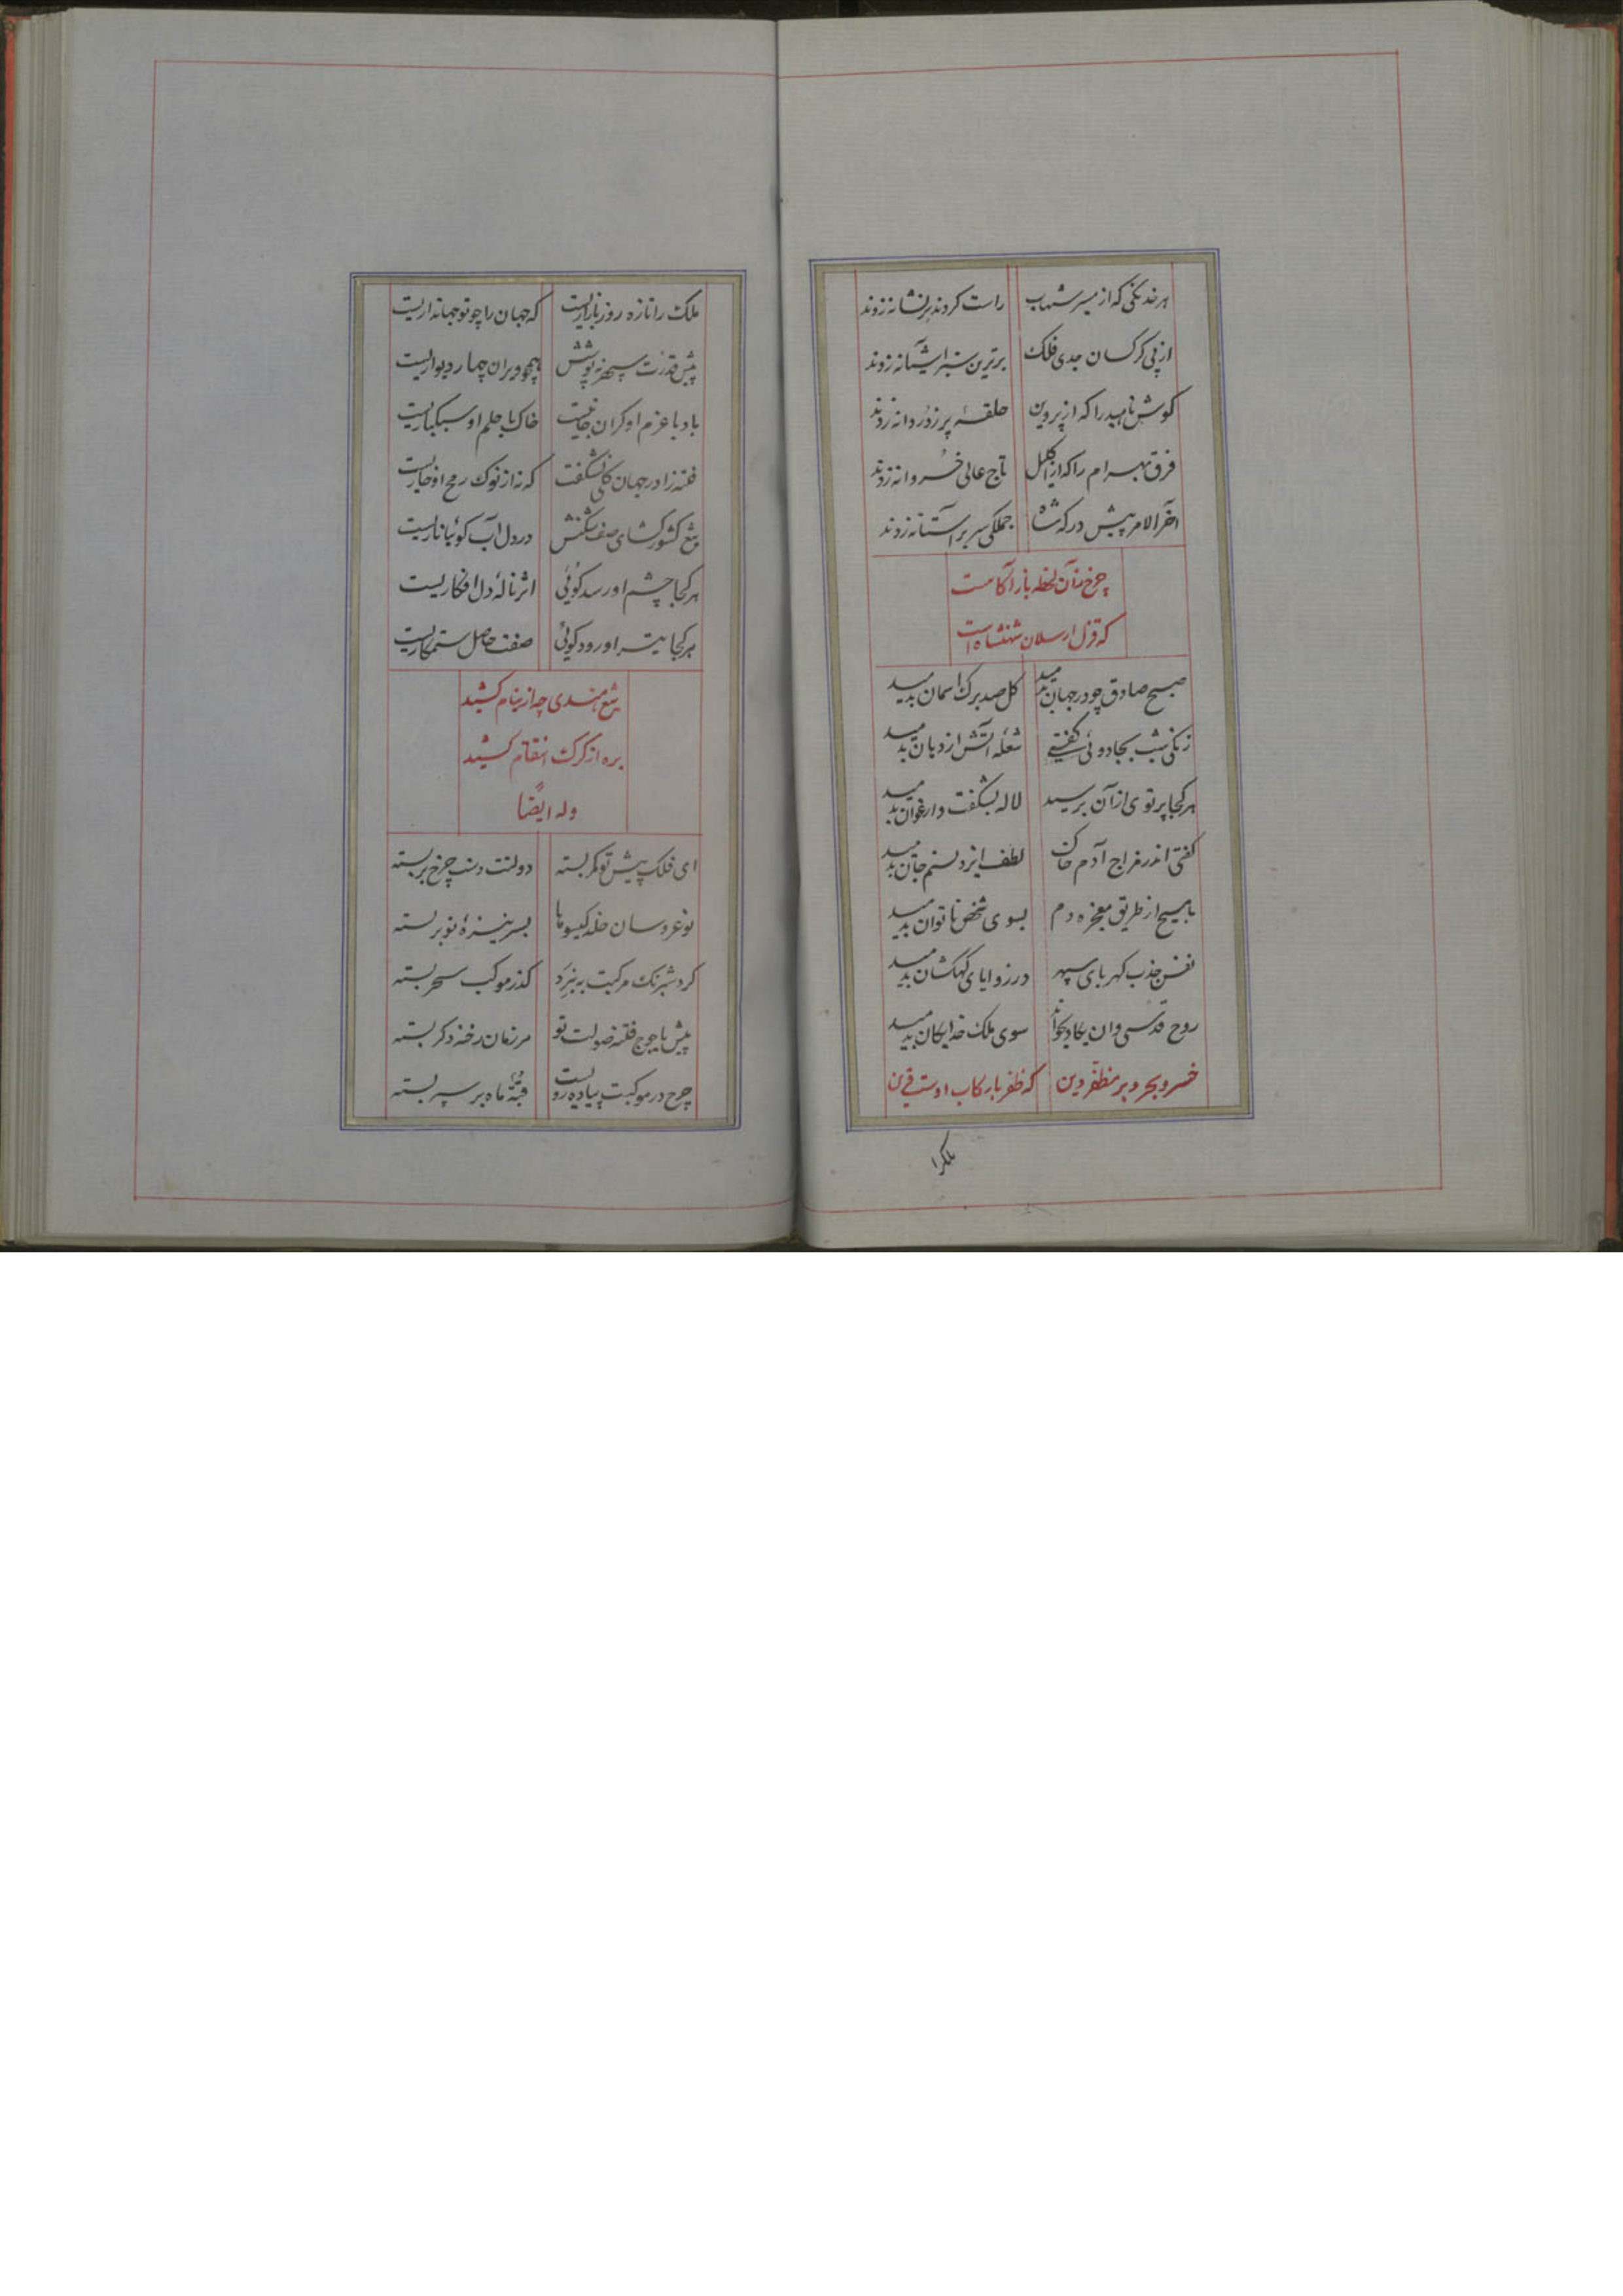 هر خدنگی که از مسیر شهاب راست کردند بر نشانه زدند
از پی کرکسان جدی فلک برترین سبز آشیانه زدند
کوش ناهید را که از پروین حلقهٔ پر ز در دانه زدند
فرق بهرام را که از اکلیل تاج عالی خسروانه زدند
آخر الامر پیش درکه شاه جملکی سر بر آستانه زدند
چرخ از آن لحظه باز آکاهست
که قزل ارسلان شهنشاه است
صبح صادق چو در جهان بدمید کل صد برک آسمان بدمید
زنکی شب بجادوئی کفتی شعله آتش از دهان بدمید
هر کجا پرتوی از آن برسید لاله بشکفت و ارغوان بدمید
کفتی اندر مزاج آدم خاک لطف ایزد نسیم جان بدمید
یا مسیح از طریق معجزه دم بسوی شخص ناتوان بدمید
نفس جذب کهربای سپهر در زوایای کهکشان بدمید
روح قدسی وان یکاد بخواند سوی ملک خدایکان بدمید
خسرو بحر و بر مظفر دین که ظفر با رکاب اوست قرین
ملکرا
ملک را تازه روز بازاریست که جهان را چو تو جهانداریست
پیش قدرت سپهر نه پوشش همچو ویران چهار دیواریست
باد با عزم او کران جانیست خاک با حلم او سبکباریست
فتنه را در جهان کلی نشکفت که نه از نوک رمح او خاریست
تیغ کشور کشای صف شکنش در دل آب کوئیا ناریست
هر کجا چشم او رسد کوئی اثر نالهٔ دل افکاریست
هر کجا تیر او رود کوئی صفت حاصل ستمکاریست
تیغ هندی چه از نیام کشید
بره از کرک انتقام کشید
وله ایضاً
ای فلک پیش تو کمر بسته دولتت دست چرخ بر بسته
نو عروسان خلد کیسوها بسر نیزهٔ تو بر بسته
کرد شبرنک مرکبت به نبرد کذر موکب سحر بسته
پیش یاجوج فتنه صولت تو هر زمان رخنهٔ دکر بسته
چرخ در موکبت پیاده رویست قبهٔ ماه بر سپر بسته